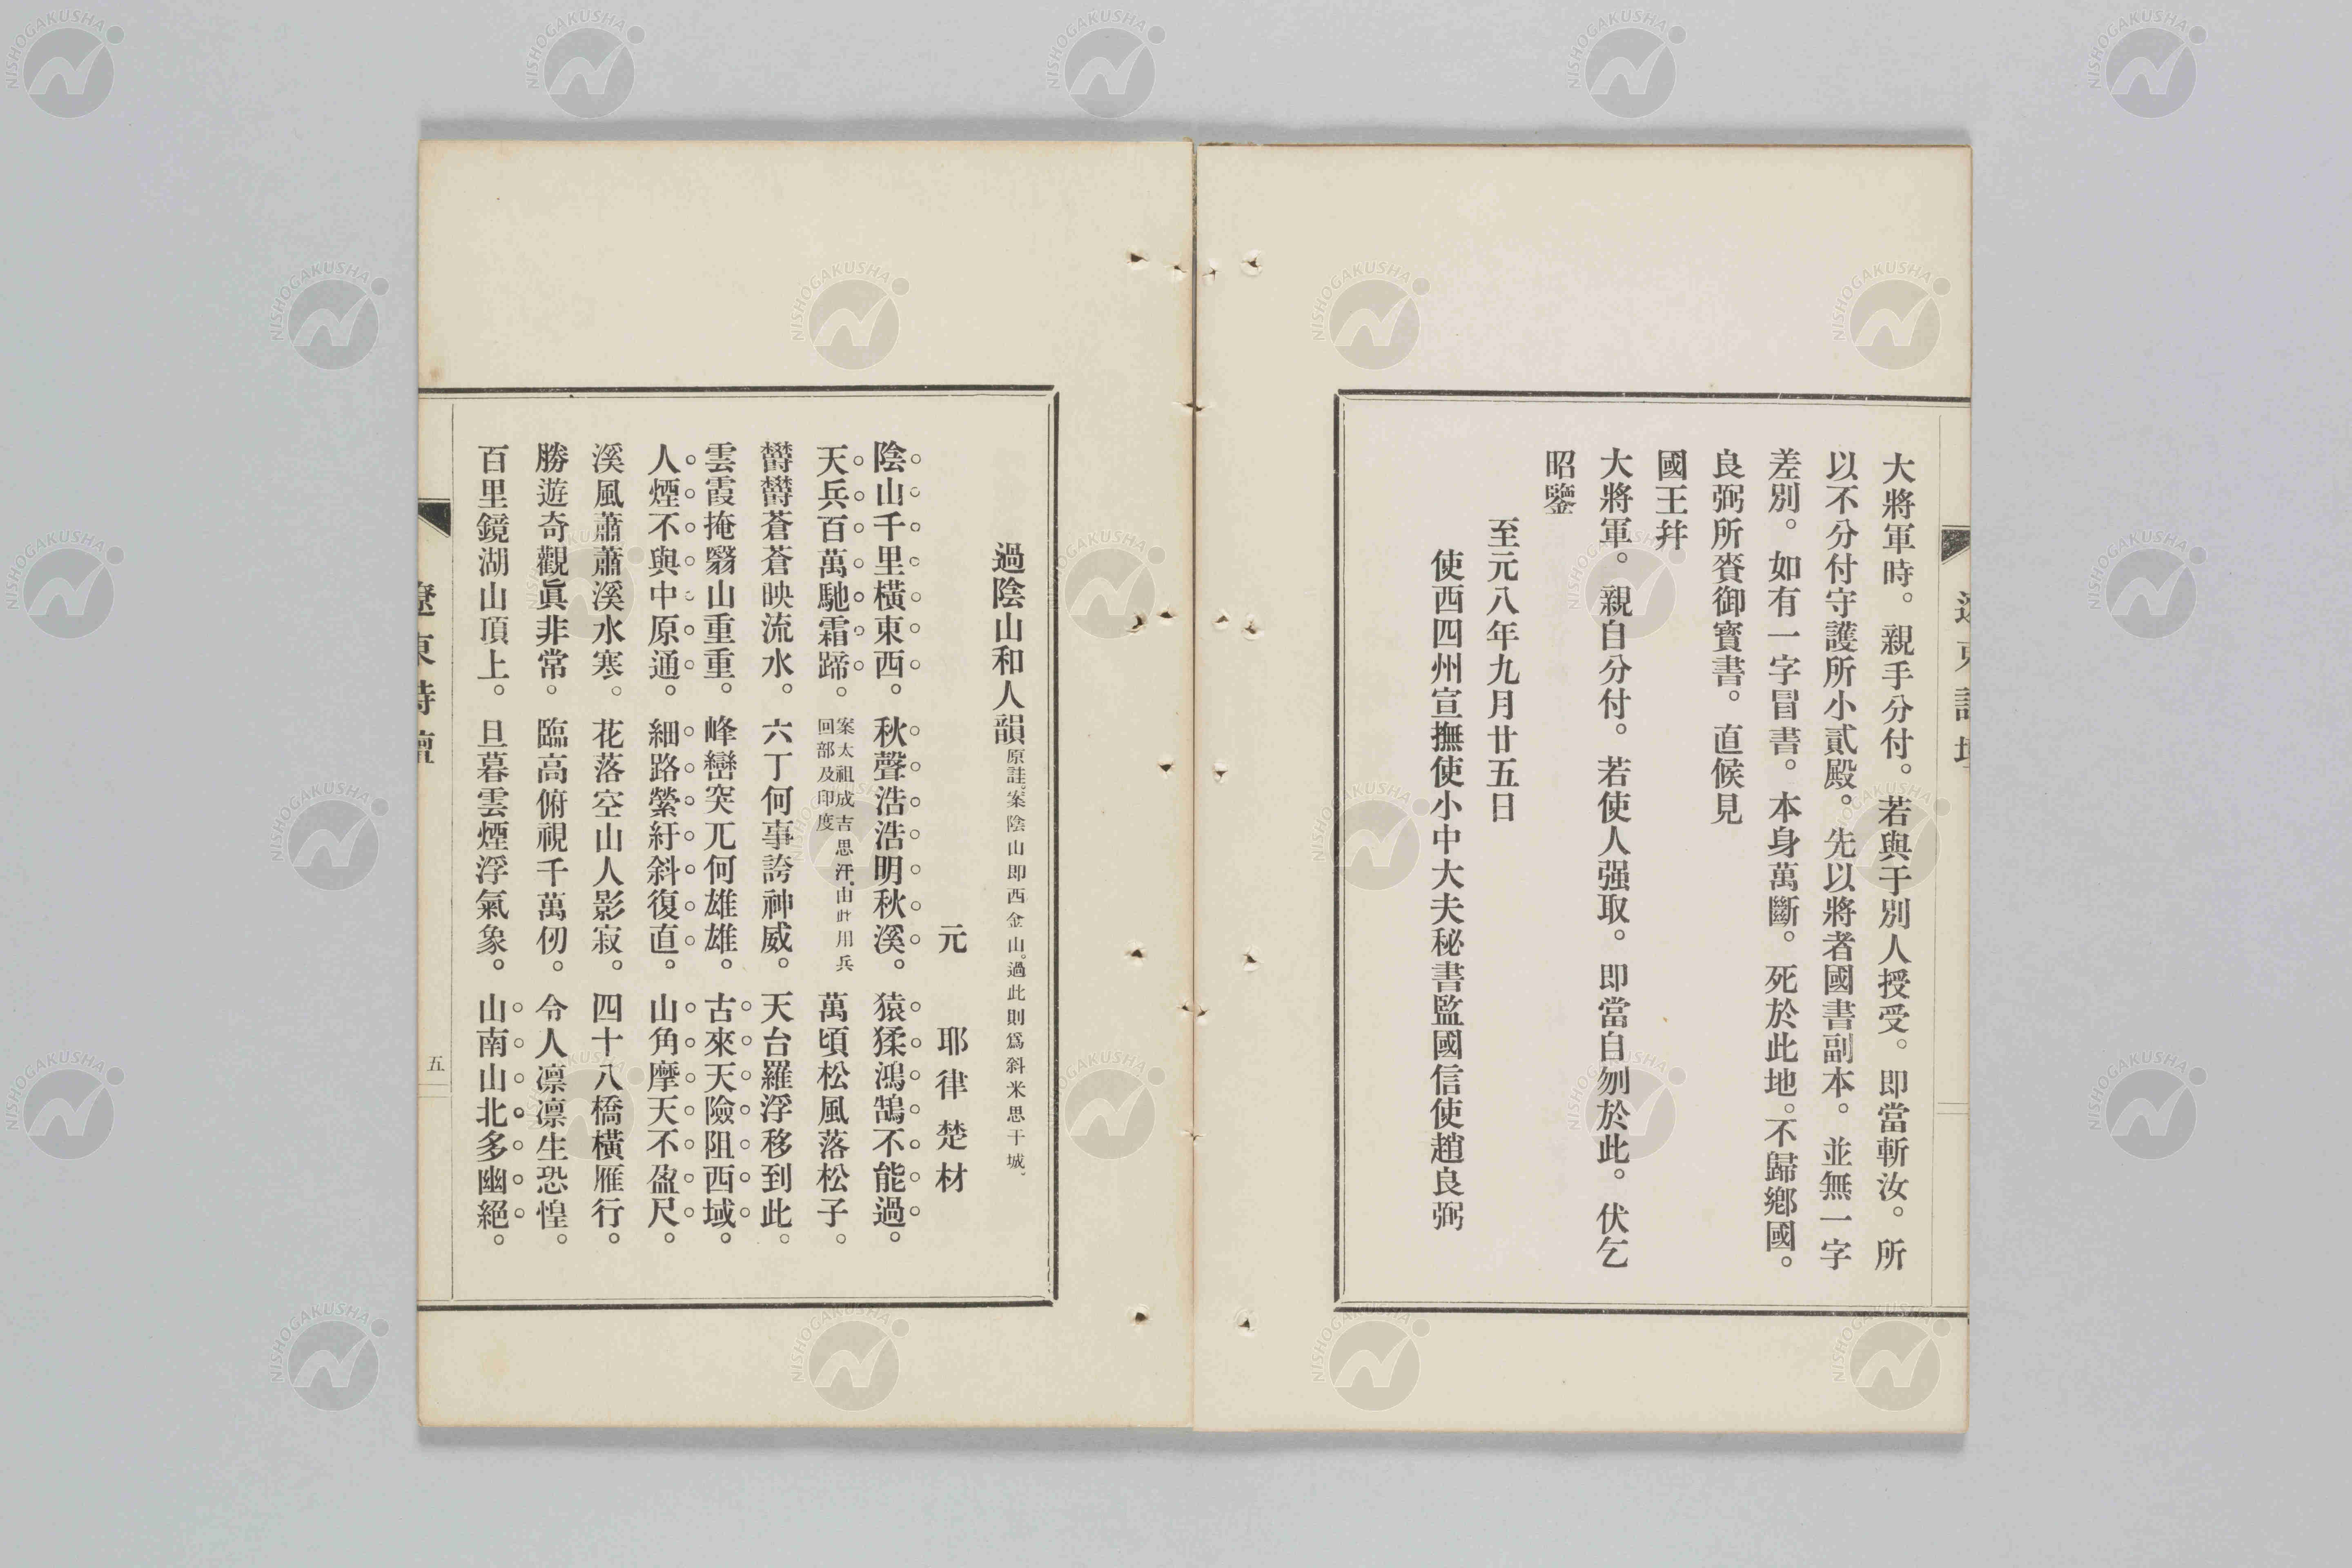 大將軍時。親手分付。若與于別人授受。即當斬汝。所
以不分付守護所小貳殿。先以將者國書副本。並無一字
差別。如有一字冒書。本身萬斷。死於此地。不歸鄉國。
良弼所賚御寶書。直候見
國王幷
大將軍。親自分付。若使人强取。即當自刎於此。伏乞
昭鑒
至元八年九月廿五日
使西四州宣撫使小中大夫秘書監國信使趙良弼
過陰山和人韻原註。案陰山即西金山。過此則爲斜米思干城。
元 耶律楚材
陰山千里橫東西。秋聲浩浩明秋溪。猿猱鴻鵠不能過。
天兵百萬馳霜蹄。案太祖成吉思汗。由此用兵回部及印度 萬頃松風落松子。
欝欝蒼蒼映流水。六丁何事誇神威。天台羅浮移到此。
雲霞掩翳山重重。峰巒突兀何雄雄。古來天險阻西域。
人煙不與中原通。細路縈紆斜復直。山角摩天不盈尺。
溪風蕭蕭溪水寒。花落空山人影寂。四十八橋橫雁行。
勝遊奇觀眞非常。臨高俯視千萬仞。令人凛凛生恐惶。
百里鏡湖山頂上。旦暮雲煙浮氣象。山南山北多幽絕。
遼東詩壇
五
NISHOGAKUSHA